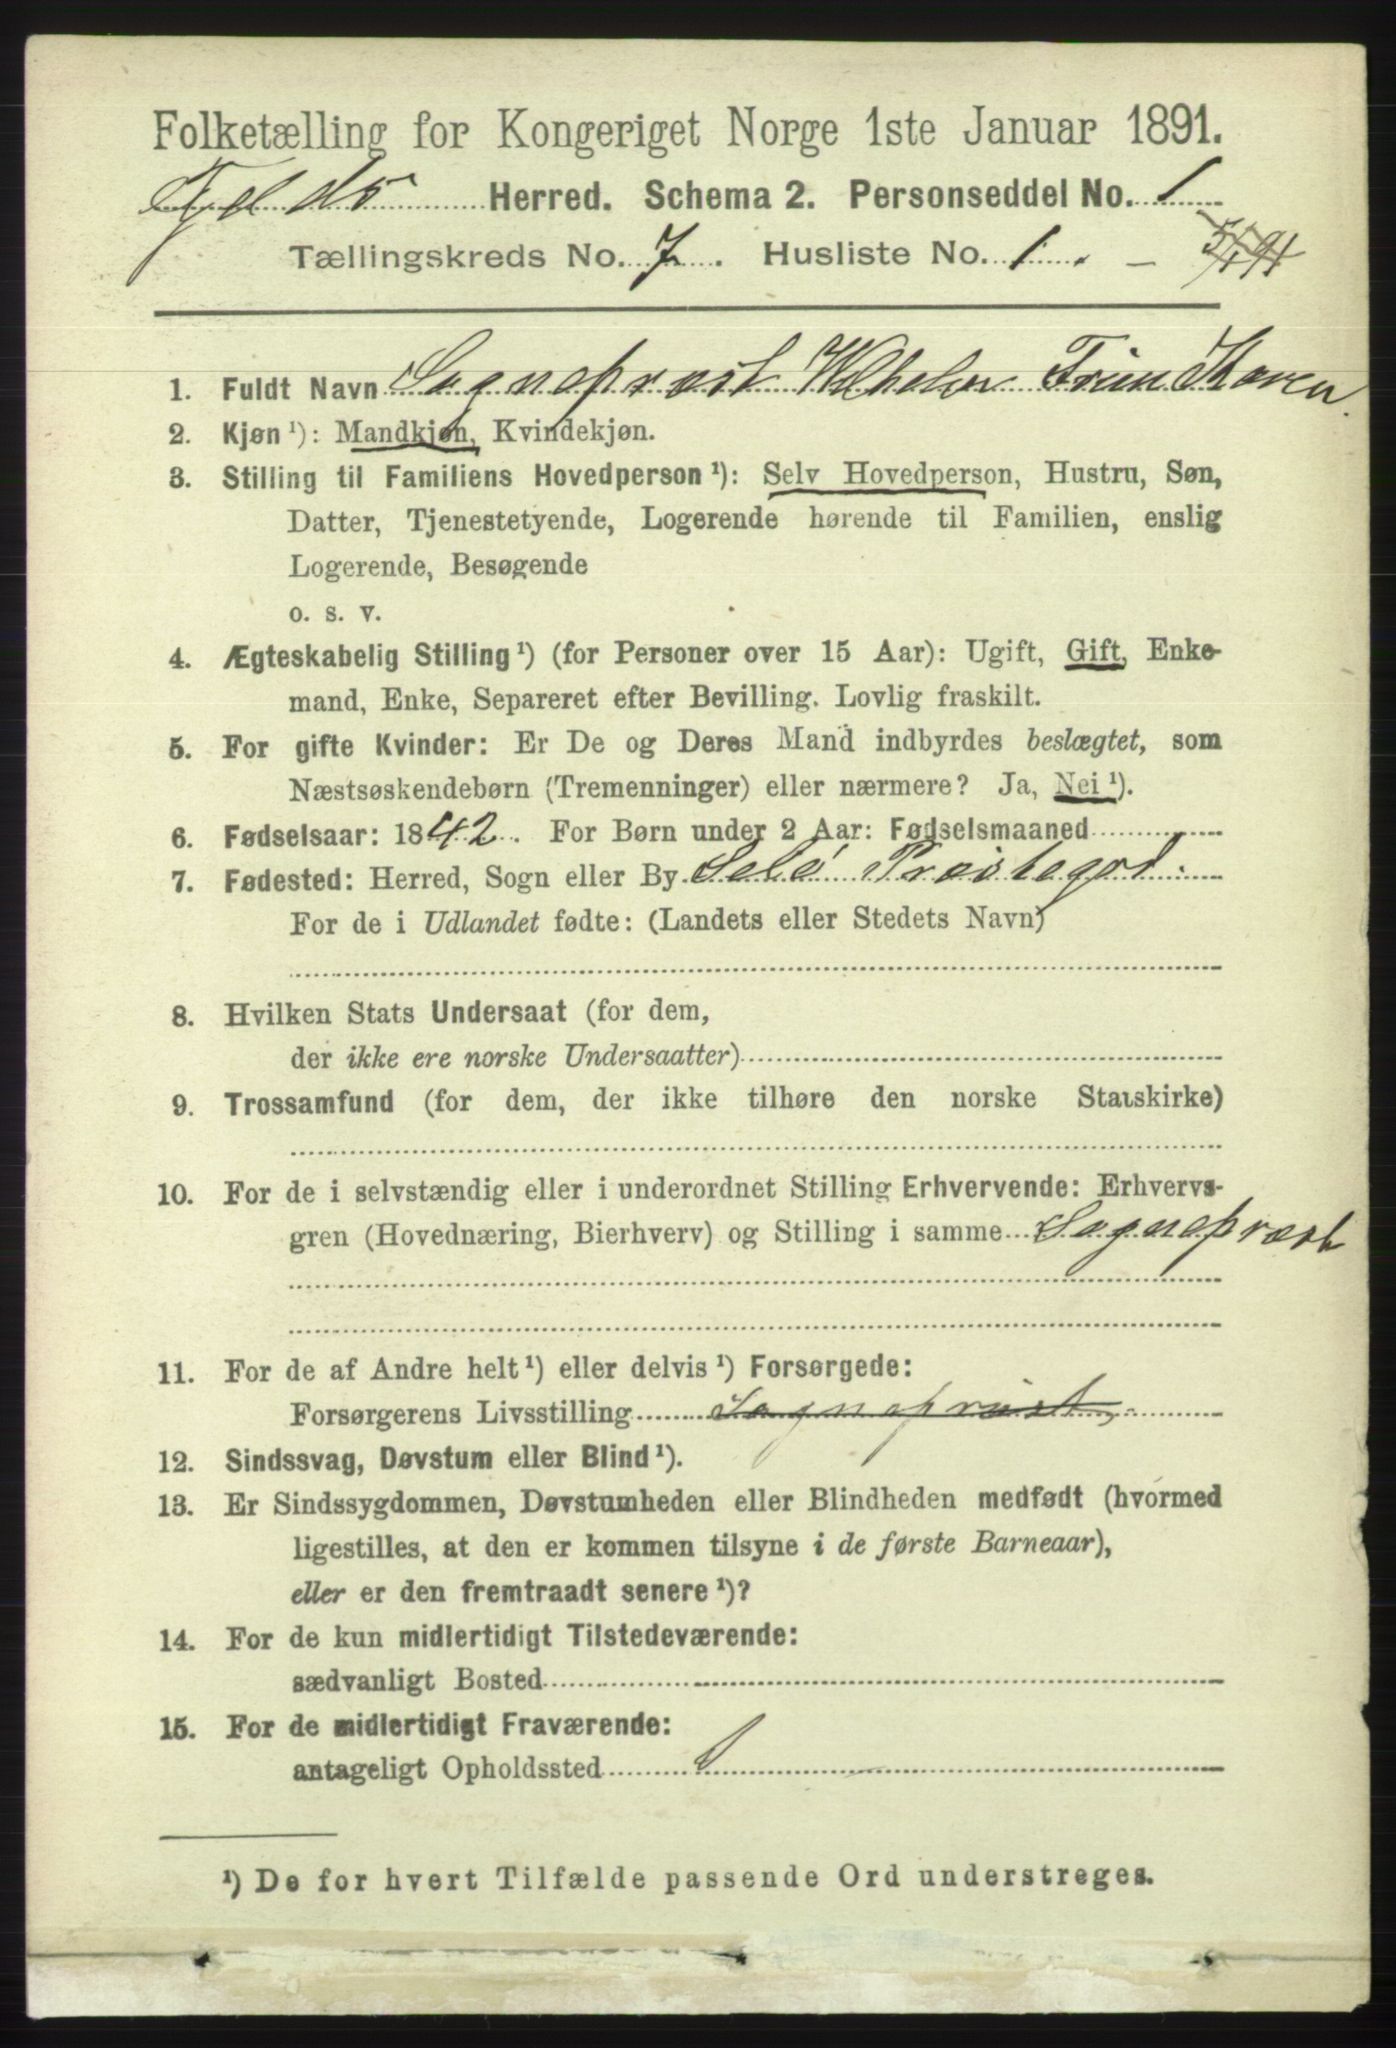 Folketælling for Kongeriget Norge 1ste Januar 1891.
Herred. Schema 2. Personseddel No. 1
Tællingskreds No. 7. Husliste No. 1. - 5/1 91
1. Fuldt Navn Sogneprest Wilhelm Friman Koren.
2. Kjøn ¹): Mandkjøn, Kvindekjøn.
3. Stilling til Familiens Hovedperson ¹): Selv Hovedperson, Hustru, Søn,
Datter, Tjenestetyende, Logerende hørende til Familien, enslig
Logerende, Besøgende
o. s. v.
4. Ægteskabelig Stilling ¹) (for Personer over 15 Aar): Ugift, Gift, Enke-
mand, Enke, Separeret efter Bevilling. Lovlig fraskilt.
5. For gifte Kvinder: Er De og Deres Mand indbyrdes beslægtet, som
Næstsøskendebørn (Tremenninger) eller nærmere? Ja, Nei ¹).
6. Fødselsaar: 1842. For Børn under 2 Aar: Fødselsmaaned
7. Fødested: Herred, Sogn eller By Selø Prestegd.
For de i Udlandet fødte: (Landets eller Stedets Navn)
8. Hvilken Stats Undersaat (for dem,
der ikke ere norske Undersaatter)
9. Trossamfund (for dem, der ikke tilhøre den norske Statskirke)
10. For de i selvstændig eller i underordnet Stilling Erhvervende: Erhvervs-
gren (Hovednæring, Bierhverv) og Stilling i samme Sogneprest
11. For de af Andre helt ¹) eller delvis ¹) Forsørgede:
Forsørgerens Livsstilling Sogneprest,
12. Sindssvag, Døvstum eller Blind ¹).
13. Er Sindssygdommen, Døvstumheden eller Blindheden medfødt (hvormed
ligestilles, at den er kommen tilsyne i de første Barneaar),
eller er den fremtraadt senere ¹)?
14. For de kun midlertidigt Tilstedeværende:
sædvanligt Bosted
15. For de midlertidigt Fraværende:
antageligt Opholdssted
¹) De for hvert Tilfælde passende Ord understreges.